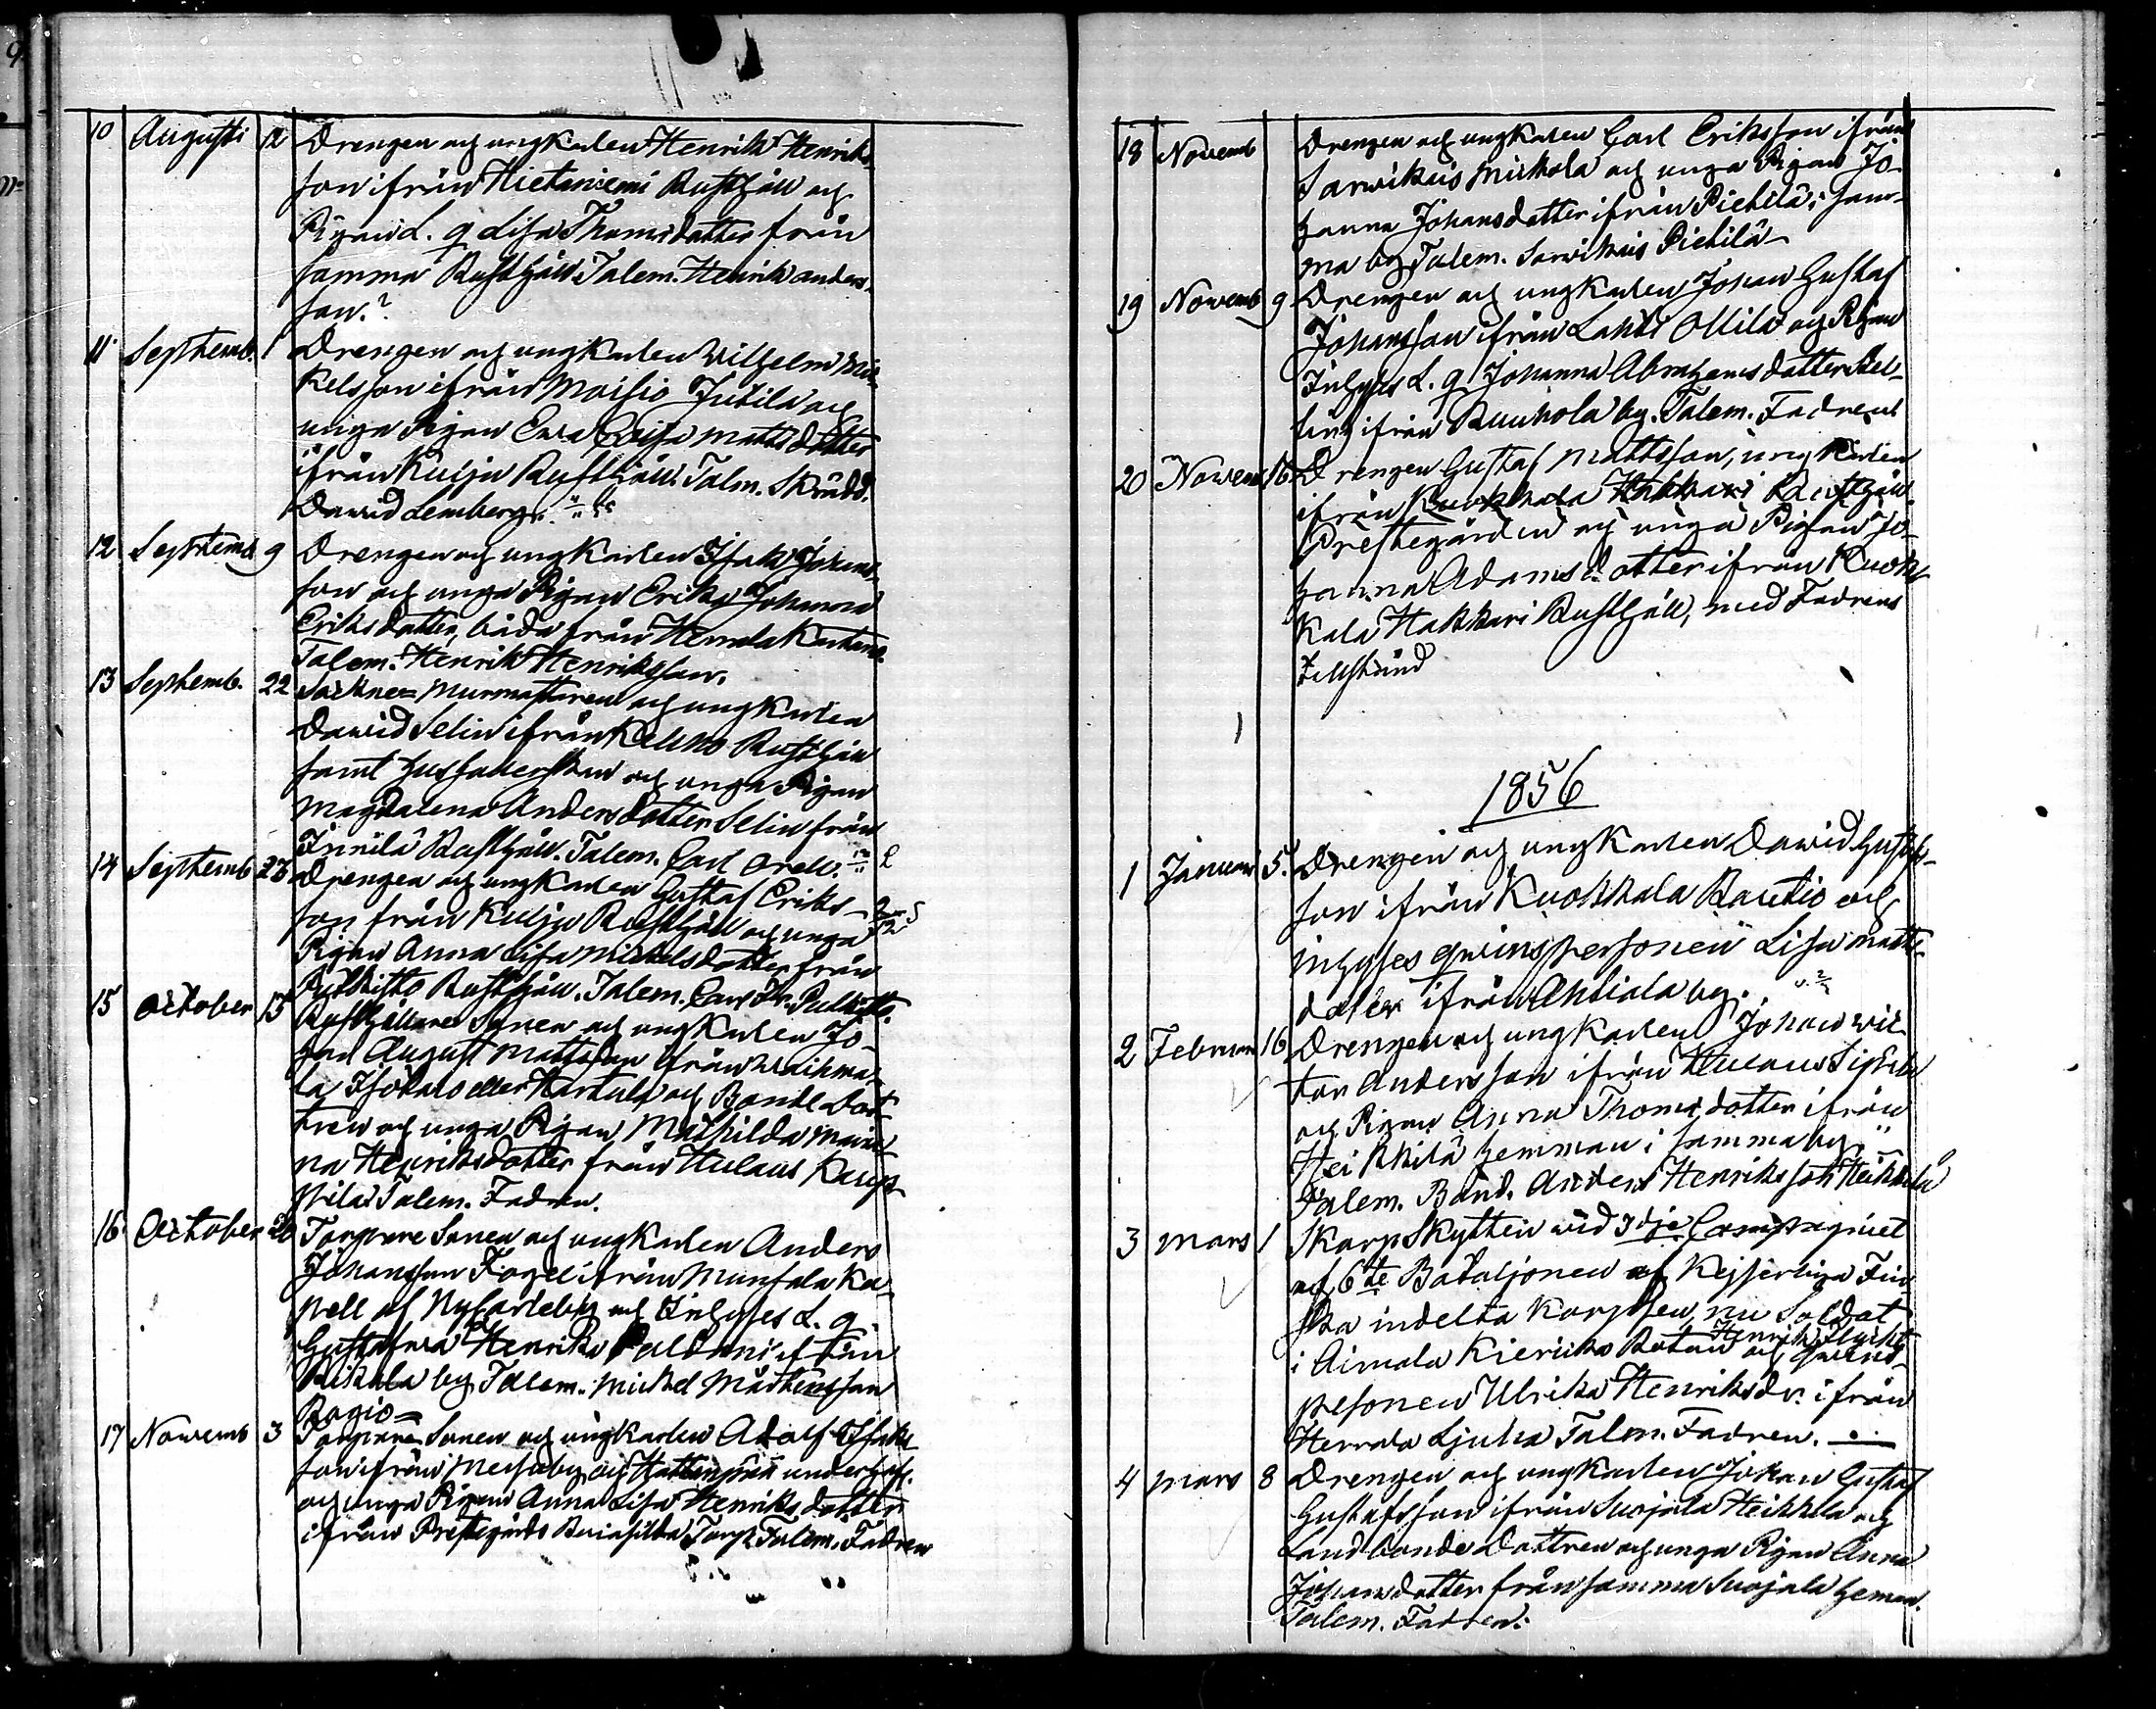 10 Augusti 12 Drengen och ungkarlen Henrik Henriks-
son ifrån Hietaniemi Rusthåll och
Pigan L. q Lisa Thomasdotter från
samma Rusthåll Talem. Henrik anders-
son.?
11 Septemb. 1 Drengen och ungkarlen Wilhelm Mi-
kelsson ifrån Moisio Jutila och
unga Pigan Eva Caisa Mattsdotter
ifrån Kulju Rusthåll. Talm. Skrädd.
Dawid Lemberg.
12 Septemb 9 Drengen och ungkarlen Isak Johans-
son och unga Pigan Erika Johanna
Eriksdotter, båda från Herrala
Talem. Henrik Henriksson.
13 Septemb. 22 Sockne- Murmästaren och ungkarlen
Dawid Selin ifrån Rusthåll
samt hushållerskan och unga Pigan
Magdalena Andersdotter Selin från
Rusthåll. Talem. Carl Orell.
14 Septemb 23 Drengen och ungkarlen Gustaf Eriks-
son från Kulju Rusthåll och unga
Pigan Anna Lisa Mickelsdotter från
Rusthåll. Talem.
15 October 13 Rusthållare Sonen och ungkarlen Jo-
han August Mattsson ifrån
eller och Bonde Dot-
tren och unga Pigan Mathilda Maria-
na Henriksdotter från Hulaus Kaup-
pila Talem. Fadren.
16 October 20 Torpare Sonen och ungkarlen Anders
Johansson ifrån Munsala Ka-
pell af Nycarleby och Inhyses L. q.
Gustafwa Henrika ifrån
by Talem. Mickel Mårtensson
17 Nowemb 3 Torpare Sonen och ungkarlen Adolf Isaks-
son ifrån by och
och unga Pigan Anna Lisa Henriksdotter
ifrån Prestegårds Torp Talem. Fadren
18 Novemb Drengen och ungkarlen Carl Eriksson ifrån
Sarwikeis Mickola och unga Pigan Jo-
hanna Johansdotter ifrån Pietilä i sam-
ma by Talem. Sarwikeis Pietilä
19 Nowemb 9 Drengen och ungkarlen Johan Gustaf
Johansson ifrån Lahti Ollila och Pigan
Inhyses L. q Johanna Abrahamsdotter
ifrån Ruuhola by. Talem. Fadren
20 Nowem 16 Drengen Gustaf Mattsson, ungkarlen
ifrån Kuokkala Hakkari Rusthåll
Prestegården och unga Pigan Jo-
hanna Adamsdotter ifrån Kuok-
kala Hakkari Rusthåll, med Fadrens
Tillstånd
1856
1 Januari 5. Drengen och ungkarlen Dawid Gustafs-
son ifrån Kuokkala Rautio och
inhyses qwinspersonen Lisa Matts-
dotter ifrån Ahtiala by.
2 Februari 16 Drengen och ungkarlen Johan Wic-
tor Andersson ifrån Hulaus
och Pigan Anna Thomasdotter ifrån
Heikkilä hemman i samma by.
Talem. Bond. Anders Henriksson Heikkilä
3 Mars 1 Skarpskytten wid 3dje Compagniet
af 6te Bataljonen af Kejserliga Fin-
ska indelta Korpsen, nu Soldat
i Aimala Kiericka Rotan Henrik Flyckt och qwins-
personen Ulrika Henriksdr. ifrån
Herrala Ljuha Talm. Fadren.
4 Mars 8 Drengen och ungkarlen Johan Gustaf
Gustafsson ifrån Suojala Heikkilä och
Landbonde Dottren och unga Pigan Anna
Johansdotter från samma Suojala heman.
Talem. Fadren.